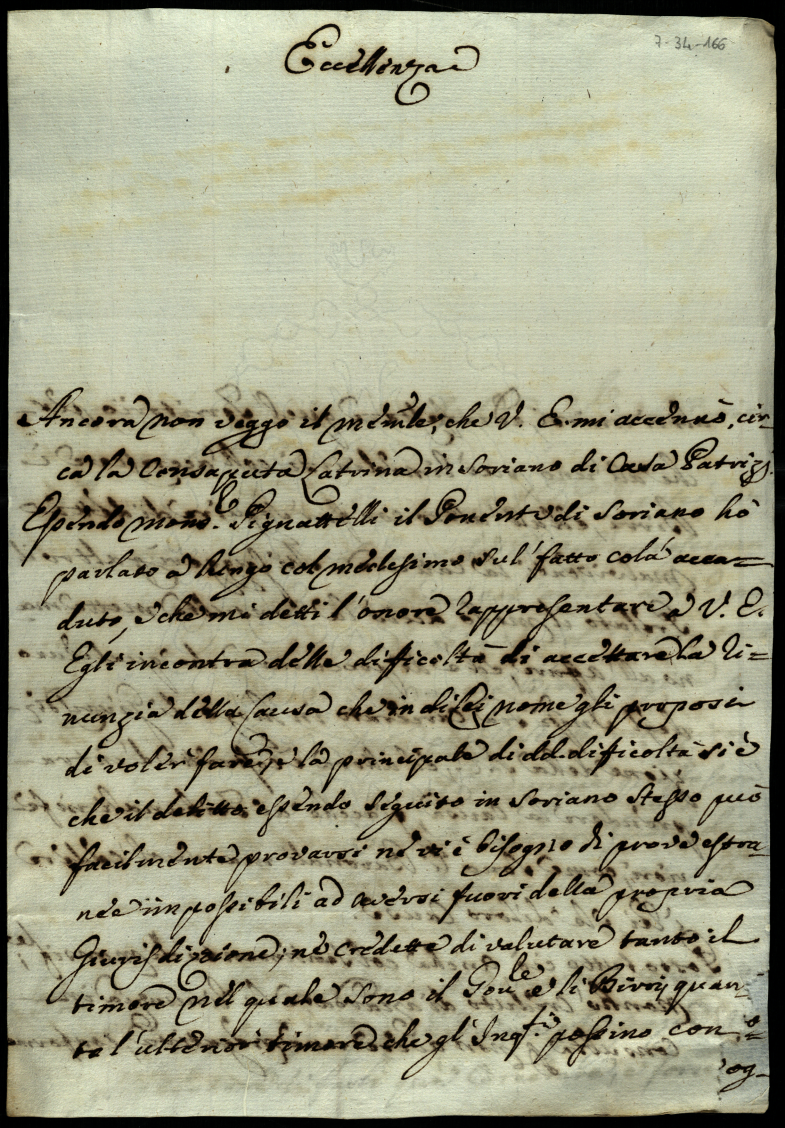 7-34-166
Eccellenza
Ancora non veggo il mem:le, che V. E. mi accennò, cir-
ca la Latrina in Soriano di Casa Patrizj.
Essendo mons:r Pignattelli il Ponente di Soriano hò
parlato à lungo col medesimo sul' fatto colà acca=
duto, e che mi detti l'onore rappresentare à V. E.
Egli incontra delle difficoltà di accettare la ri=
nunzia della Causa che in di Lei nome gli proposi
di voler fare, e la principale di dd. difficoltà si è
che il delitto essendo seguito in Soriano stesso può
facilmente provarsi nè vi è bisogno di prove estra-
nee impossibili ad aversi fuori della propria
Giurisdizione; nè credette di valutare tanto il
timore nel quale sono il Gov:le e li Birri quan-
to l'ulteriore timore che gl'Inq:ti possino con
og-